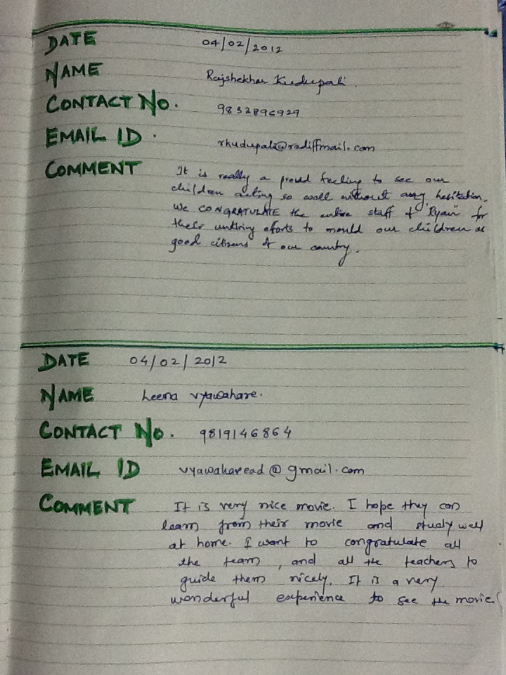 DATE 04/02/2012
NAME Rajshekhar Kudupali
CONTACT No. 9832896929
EMAIL ID. rkudupali@rediffmail.com
COMMENT It is really a proud feeling to see our
children acting so well without any hesitation.
We CONGRATULATE the entire staff of "Ryan" for
their untiring eforts to mould our children as
good citizens of our country.
DATE 04/02/2012
NAME Leena vyawahare.
CONTACT No. 9819146864
EMAIL ID vyawaharead@gmail.com
COMMENT It is very nice movie. I hope they can
learn from their movie and study well
at home. I want to congratulate all
the team, and all the teachers to
guide them nicely. It is a very
wonderful experience to see the movie!